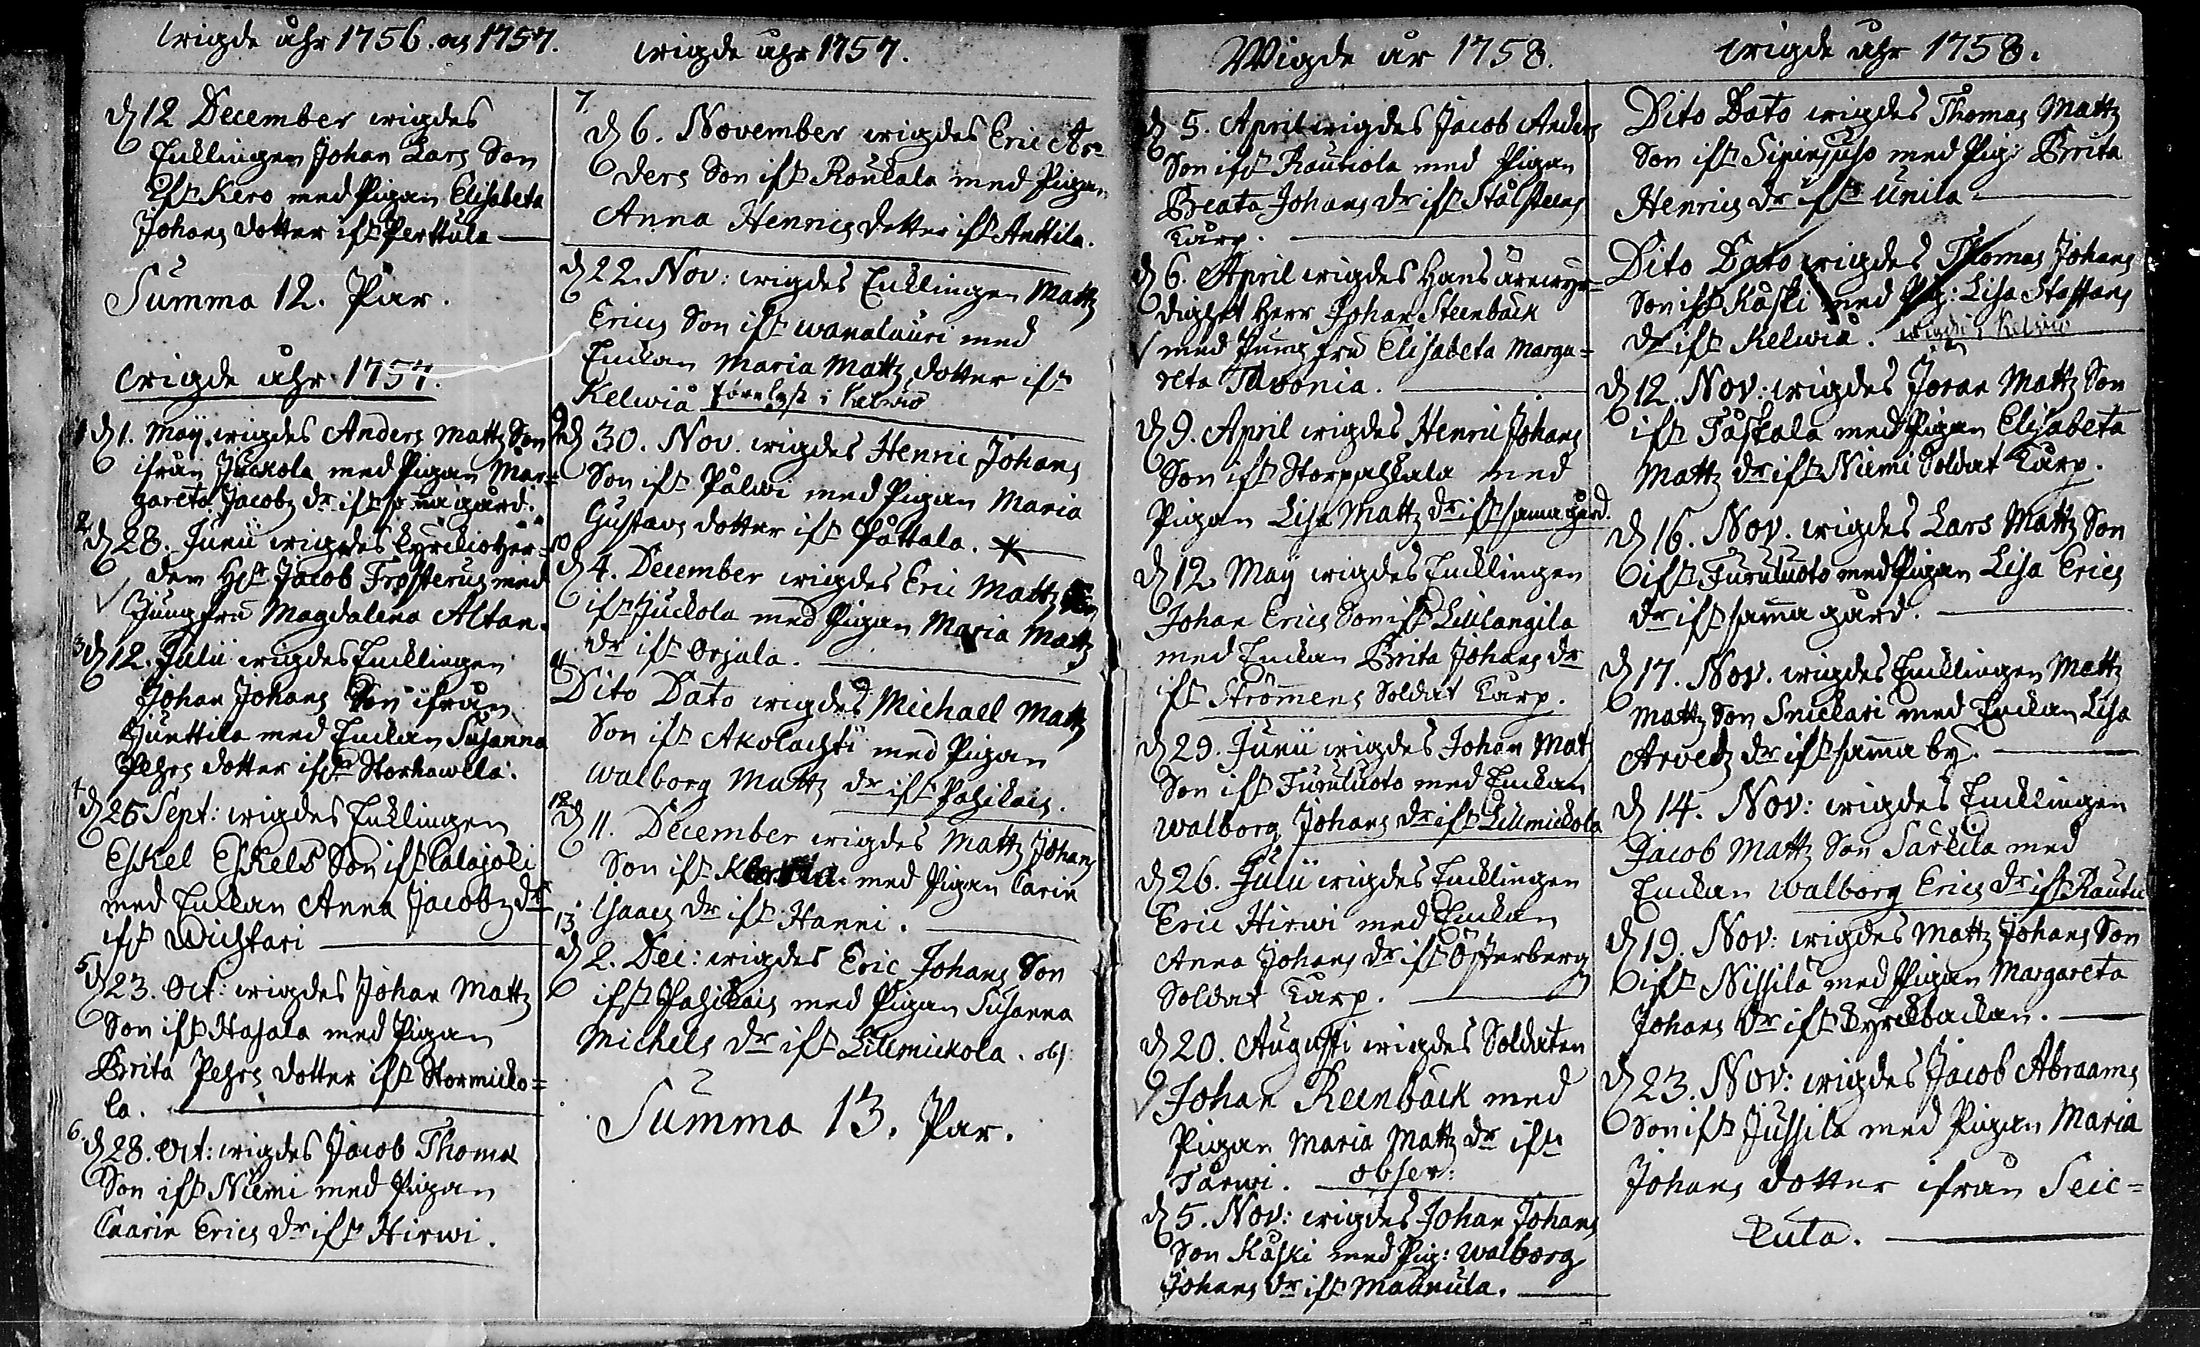 wigde åhr 1756. och 1757.
d 12 December wigdes
Encklingen Johan Lars Son
ifr. Kero med Pigan Elisabeta
Johans dotter ifr. Perttula
Summa 12. Par.
wigde åhr 1757.
1 d 1. Maÿ wigdes Anders Mattz Son
ifrån Juckola med Pigan Mar=
gareta Jacobz dr. ifr. samma gård.
2 d 28. Junii wigdes Kyrckioher=
den Hr Jacob Frosterus med
Jungfru Magdalena Altan.
3 d 12. Julii wigdes Encklingen
Johan Johans Son ifrån
Junttila med Enckan Susanna
Pehrs dotter ifr. Storhawela.
4 d 25 Sept: wigdes Encklingen
Eskel Eskels Son ifr. Calajoki
med Enckan Anna Jacobz dr
ifr. Wichtari
5 d 23. Oct: wigdes Johan Mattz
Son ifr. Hasala med Pigan
Brita Pehrs dotter ifr. Stormicko=
la.
6. d 28. Oct: wigdes Jacob Thomæ
Son ifr. Niemi med Pigan
Caarin Erics dr. ifr. Hirwi.
wigde åhr 1757.
7. d 6. November wigdes Eric An=
ders Son ifr. Roukala med Pigan
Anna Henrics dotter ifr. Anttila.
d 22. Nov: wigdes Encklingen Mattz
Erics Son ifr. wanalauri med
Enckan Maria Mattz dotter ifr.
Kelwiå förelyst i Kelwiå
9 d 30. Nov. wigdes Henric Johans
Son ifr. Pålwi med Pigan Maria
Gustavs dotter ifr. Påttala.
10 d 4. December wigdes Eric Mattz Son
ifr. Juckola med Pigan Maria Mattz
dr. ifr. Orjala.
11 Dito Dato wigdes Michael Mattz
Son ifr. Akolachti med Pigan
Walborg Mattz dr. ifr. Pasikais.
12 d 11. December wigdes Mattz Johans
Son ifr. med Pigan Carin
Isaacs dr. ifr. Hanni.
13. d 2. Dec: wigdes Eric Johans Son
ifr. Pasikais med Pigan Susanna
Michels dr. ifr. Lillmickola. obs:
Summa 13. Par.
Wigde år 1758.
d 5. April wigdes Jacob Anders
Son ifr. Rautiola med Pigan
Breata Johans dr. ifr. Stålsteens
Torp.
d 6. April wigdes Hans ärewyr=
dighet Herr Johan Steenbäck
med Jungfru Elisabeta Marga=
reta Pavonia.
d 9. April wigdes Henric Johans
Son ifr. Storpassala med
Pigan Lisa Mattz dr. ifr. sama gård.
d 12 Maÿ wigdes Encklingen
Johan Erics Son ifr. Lillangila
med Enckan Brita Johans dr
ifr. Strömens Soldat Torp.
d 29. Junii wigdes Johan Matz
Son ifr. Furuluoto med Enckan
Walborg Johans dr. ifr. Lillmickola
d 26. Julii wigdes Encklingen
Eric Hirwi med Enckan
Anna Johans dr. ifr. Österberg
Soldat Torp.
d 20. Augusti wigdes Soldaten
Johan Reenbäck med
Pigan Maria Mattz dr. ifr.
Tarwi. obser:
d 5. Nov: wigdes Johan Johans
Son Kåski med Pig: Walborg
Johans dr. ifr. Maunula.
wigde åhr 1758.
Dito Dato wigdes Thomas Mattz
Son ifr. med Pig: Brita
Henrics dr. ifr. Unila
Dito Dato wigdes Thomas Johans
Son ifr. Kåski med Pig: Lisa Staffans
dr. ifr. Kelwiå. wigde i Kelwiå
d 12. Nov: wigdes Jöran Mattz Son
ifr. Taskala med Pigan Elisabeta
Mattz dr. ifr. Niemi Soldat Torp.
d 16. Nov. wigdes Lars Mattz Son
ifr. Furuluoto med Pigan Lisa Erics
dr. ifr. sama gård.
d 17. Nov. wigdes Encklingen Mattz
Mattz Son Snickari med Enckan Lisa
Arvedz dr. ifr. sama by.
d 14. Nov: wigdes Encklingen
Jacob Mattz Son Särkilä med
Enckan Walborg Erics dr. ifr. Rautio
d 19. Nov: wigdes Mattz Johans Son
ifr. Nissilä med Pigan Margareta
Johans dr. ifr. Kyrckbackan.
d 23. Nov: wigdes Jacob Abraams
Son ifr. Jussila med Pigan Maria
Johans dotter ifrån Seic=
kuta.